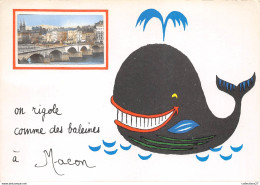 on rigole
comme des baleines
à Macon